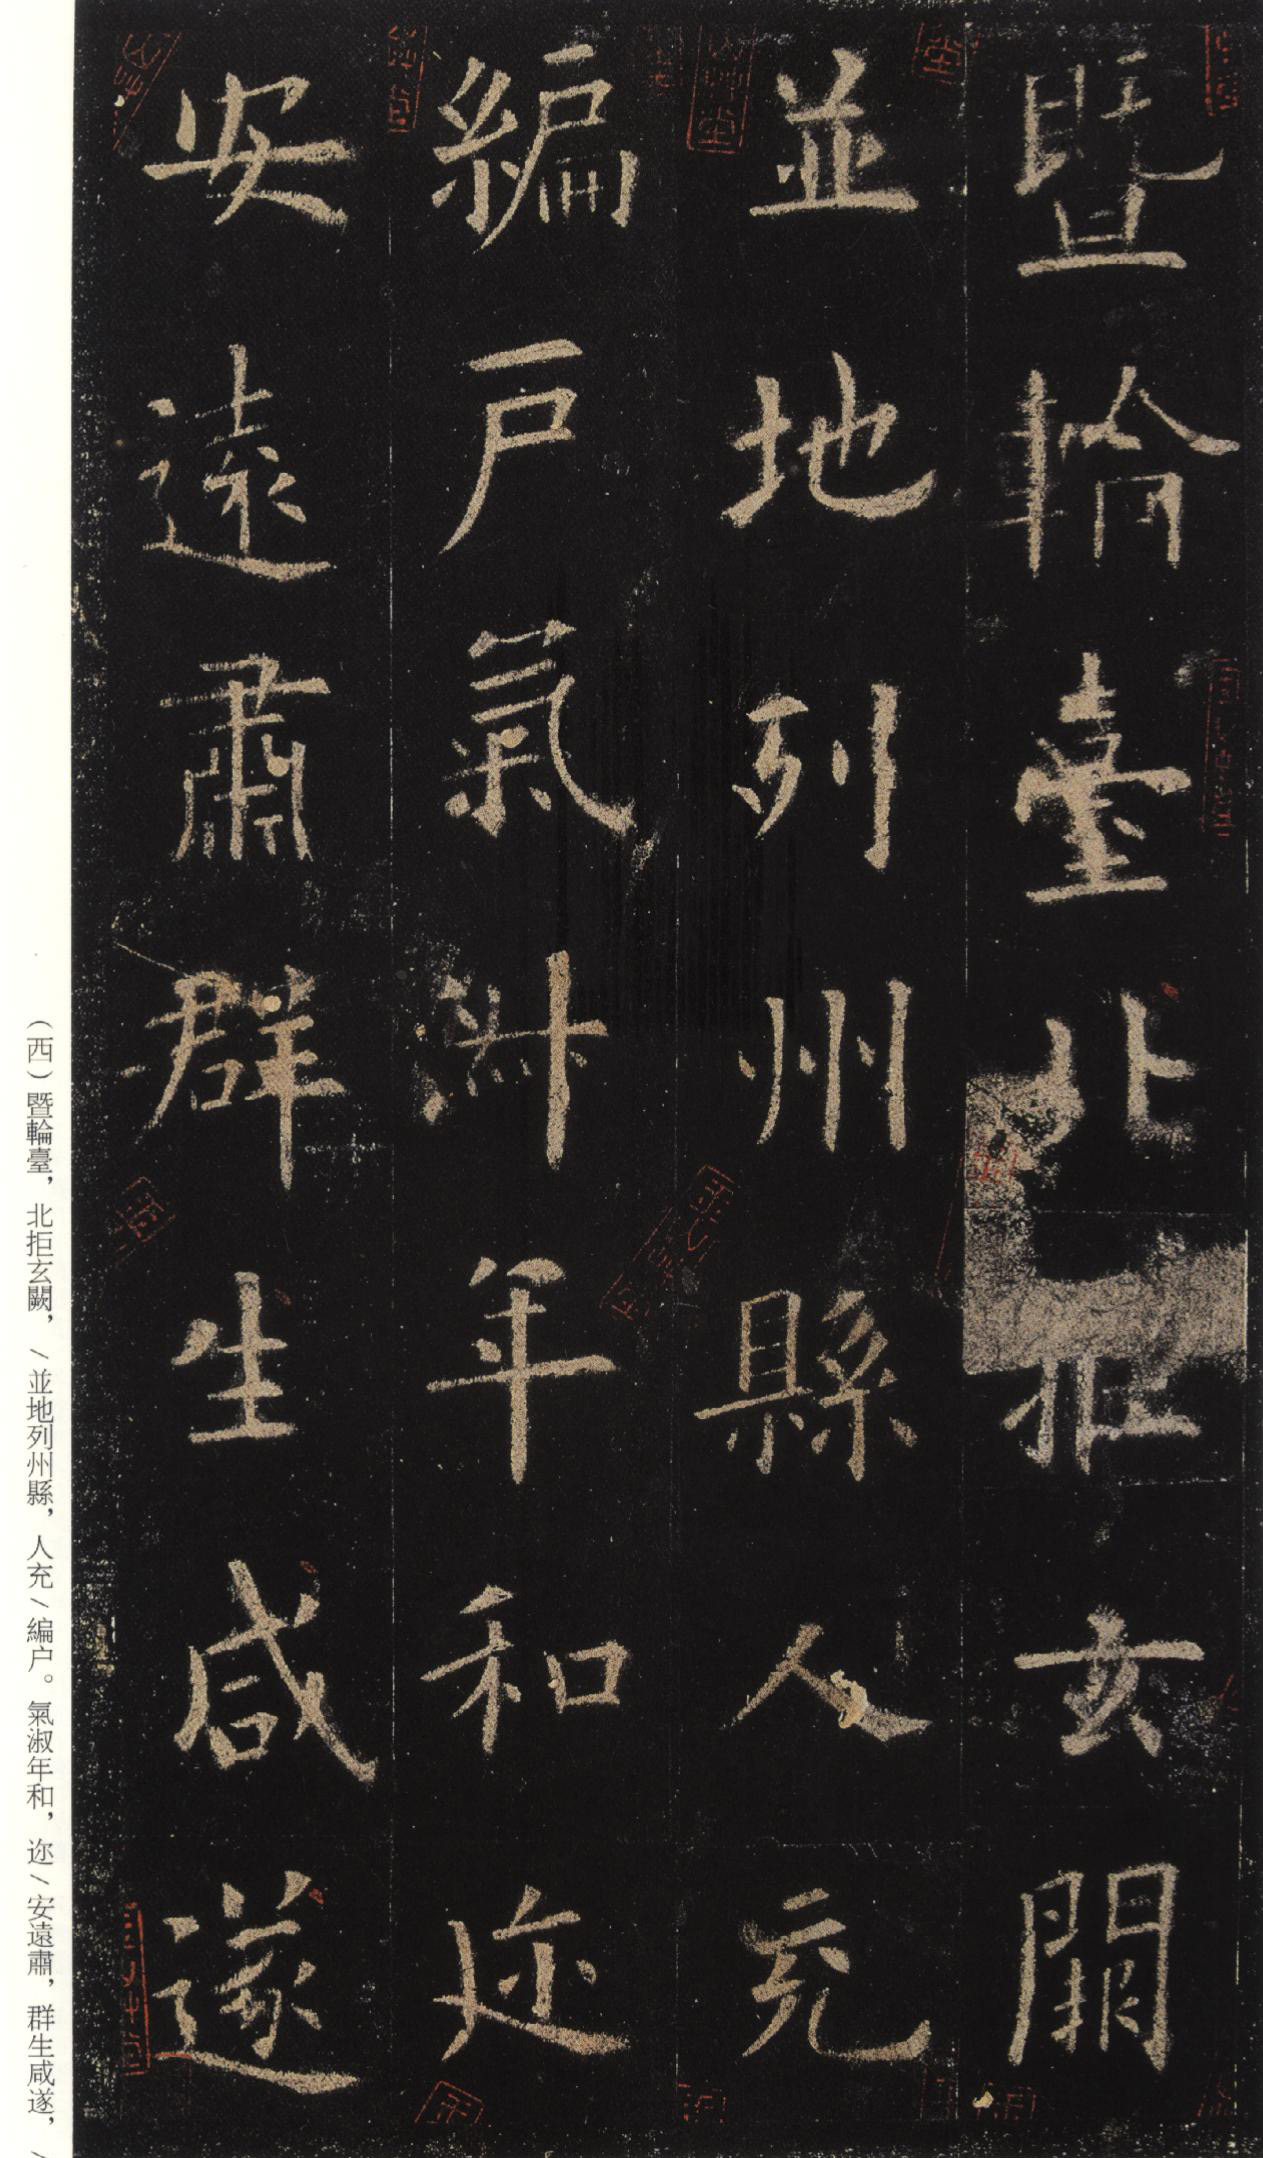 暨輪臺北拒玄闕
並地列州縣人充
編戸氣淑年和迩
安遠肅群生咸遂
（西）暨輪臺，北拒玄闕，/並地列州縣，人充/編户。氣淑年和，迩/安遠肅，群生咸遂，/